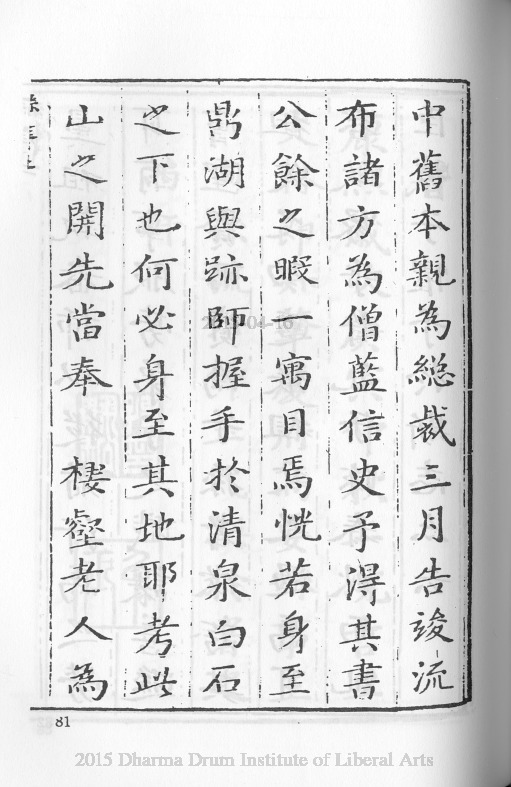 中舊本親為総裁三月告竣流
布諸方為僧藍信史予淂其書
公餘之暇一寓目焉恍若身至
鼎湖與跡師握手於清泉白石
之下也何必身至其地耶考此
山之開先當奉 棲壑老人為
81
2015-04-16
2015 Dharma Drum Institute of Liberal Arts